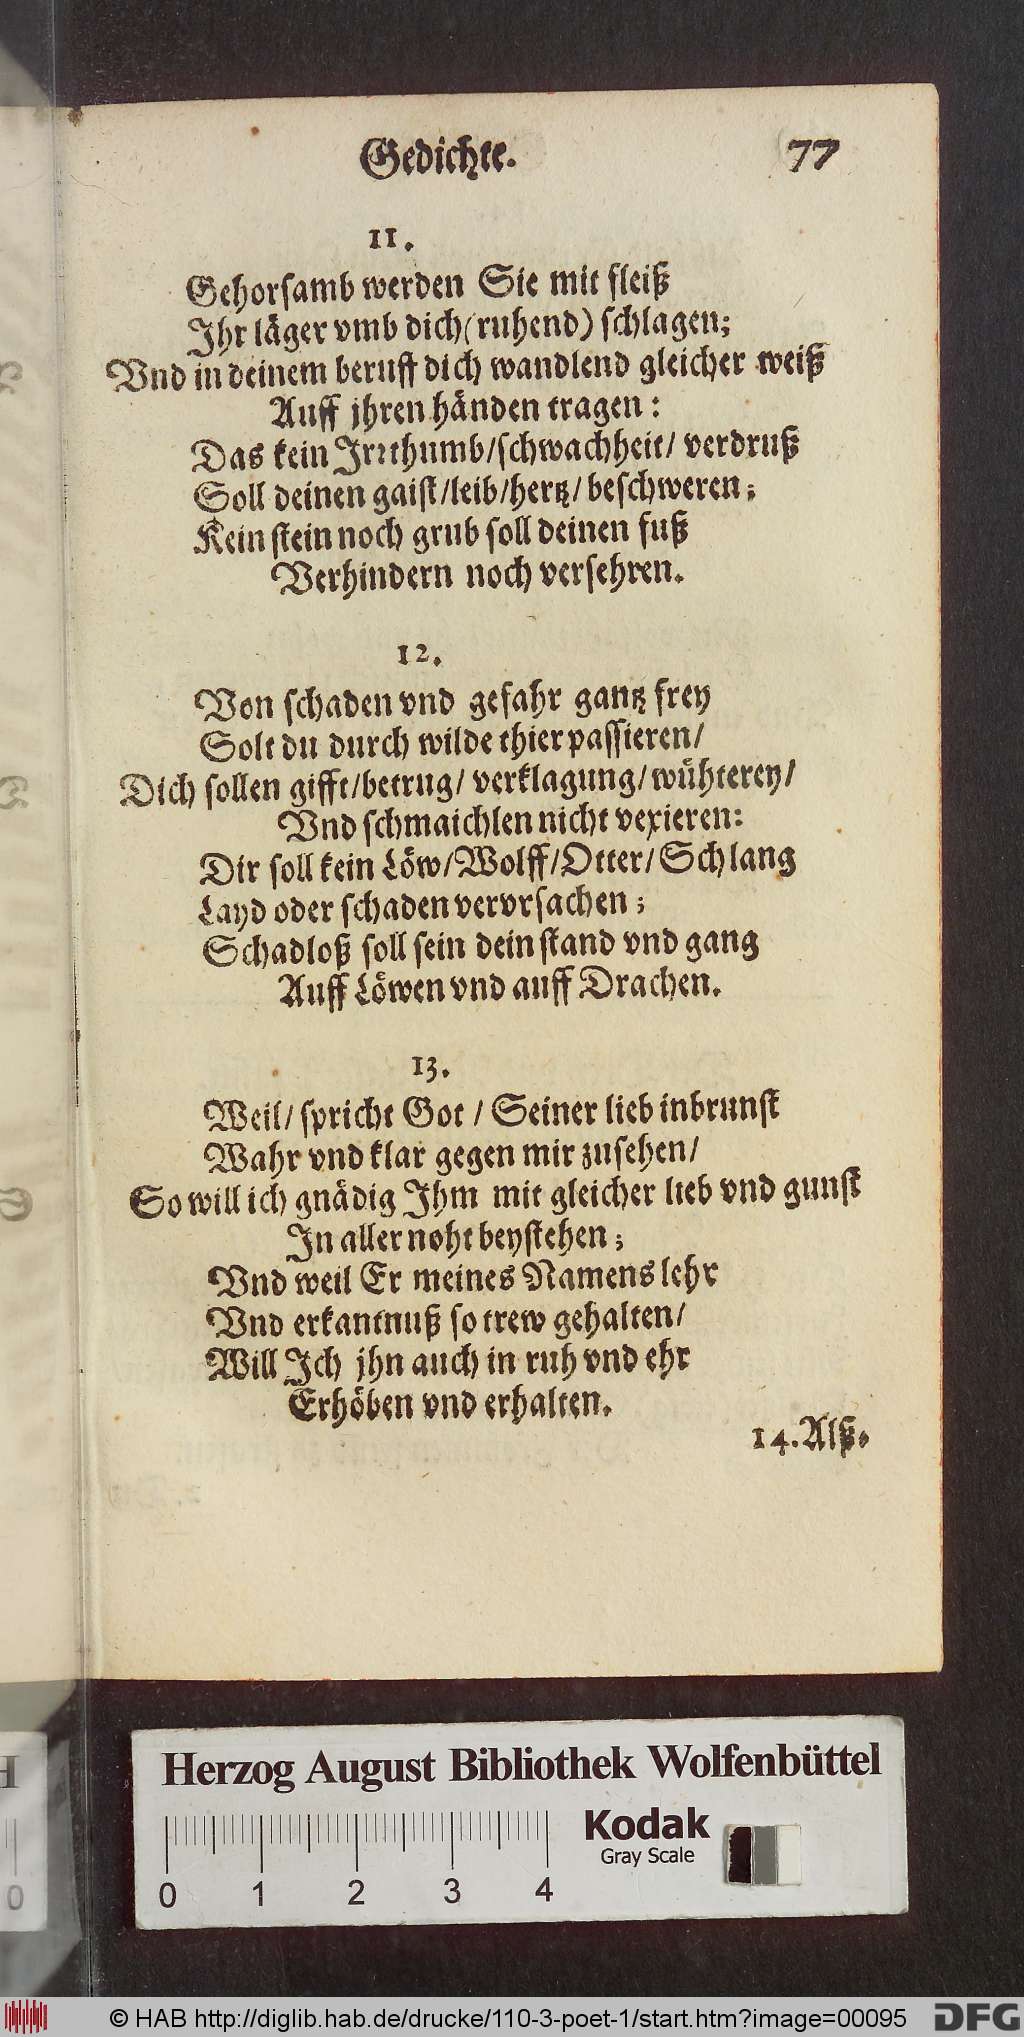 Gedichte. 77
11.
Gehorsamb werden Sie mit fleiß
Ihr läger vmb dich (ruhend) schlagen;
Vnd in deinem beruff dich wandlend gleicher weiß
Auff jhren händen tragen:
Das kein Irrthumb/schwachheit/ verdruß
Soll deinen gaist/leib/hertz/ beschweren;
Kein stein noch grub soll deinen fuß
Verhindern noch versehren.
12.
Von schaden vnd gefahr gantz frey
Solt du durch wilde thier passieren/
Dich sollen gifft/betrug/ verklagung/wühterey/
Vnd schmaichlen nicht vexieren:
Dir soll kein Löw/Wolff/Otter/Schlang
Layd oder schaden vervrsachen;
Schadloß soll sein dein stand vnd gang
Auff Löwen vnd auff Drachen.
13.
Weil/ spricht Got / Seiner lieb inbrunst
Wahr vnd klar gegen mir zusehen/
So will ich gnädig Ihm mit gleicher lieb vnd gunst
In aller noht beystehen;
Vnd weil Er meines Namens lehr
Vnd erkantnuß so trew gehalten/
Will Ich jhn auch in ruh vnd ehr
Erhöben vnd erhalten.
14. Alß.
Herzog August Bibliothek Wolfenbüttel
Kodak
Gray Scale
0 1 2 3 4
© HAB http://diglib.hab.de/drucke/110-3-poet-1/start.htm?image=00095
DFG